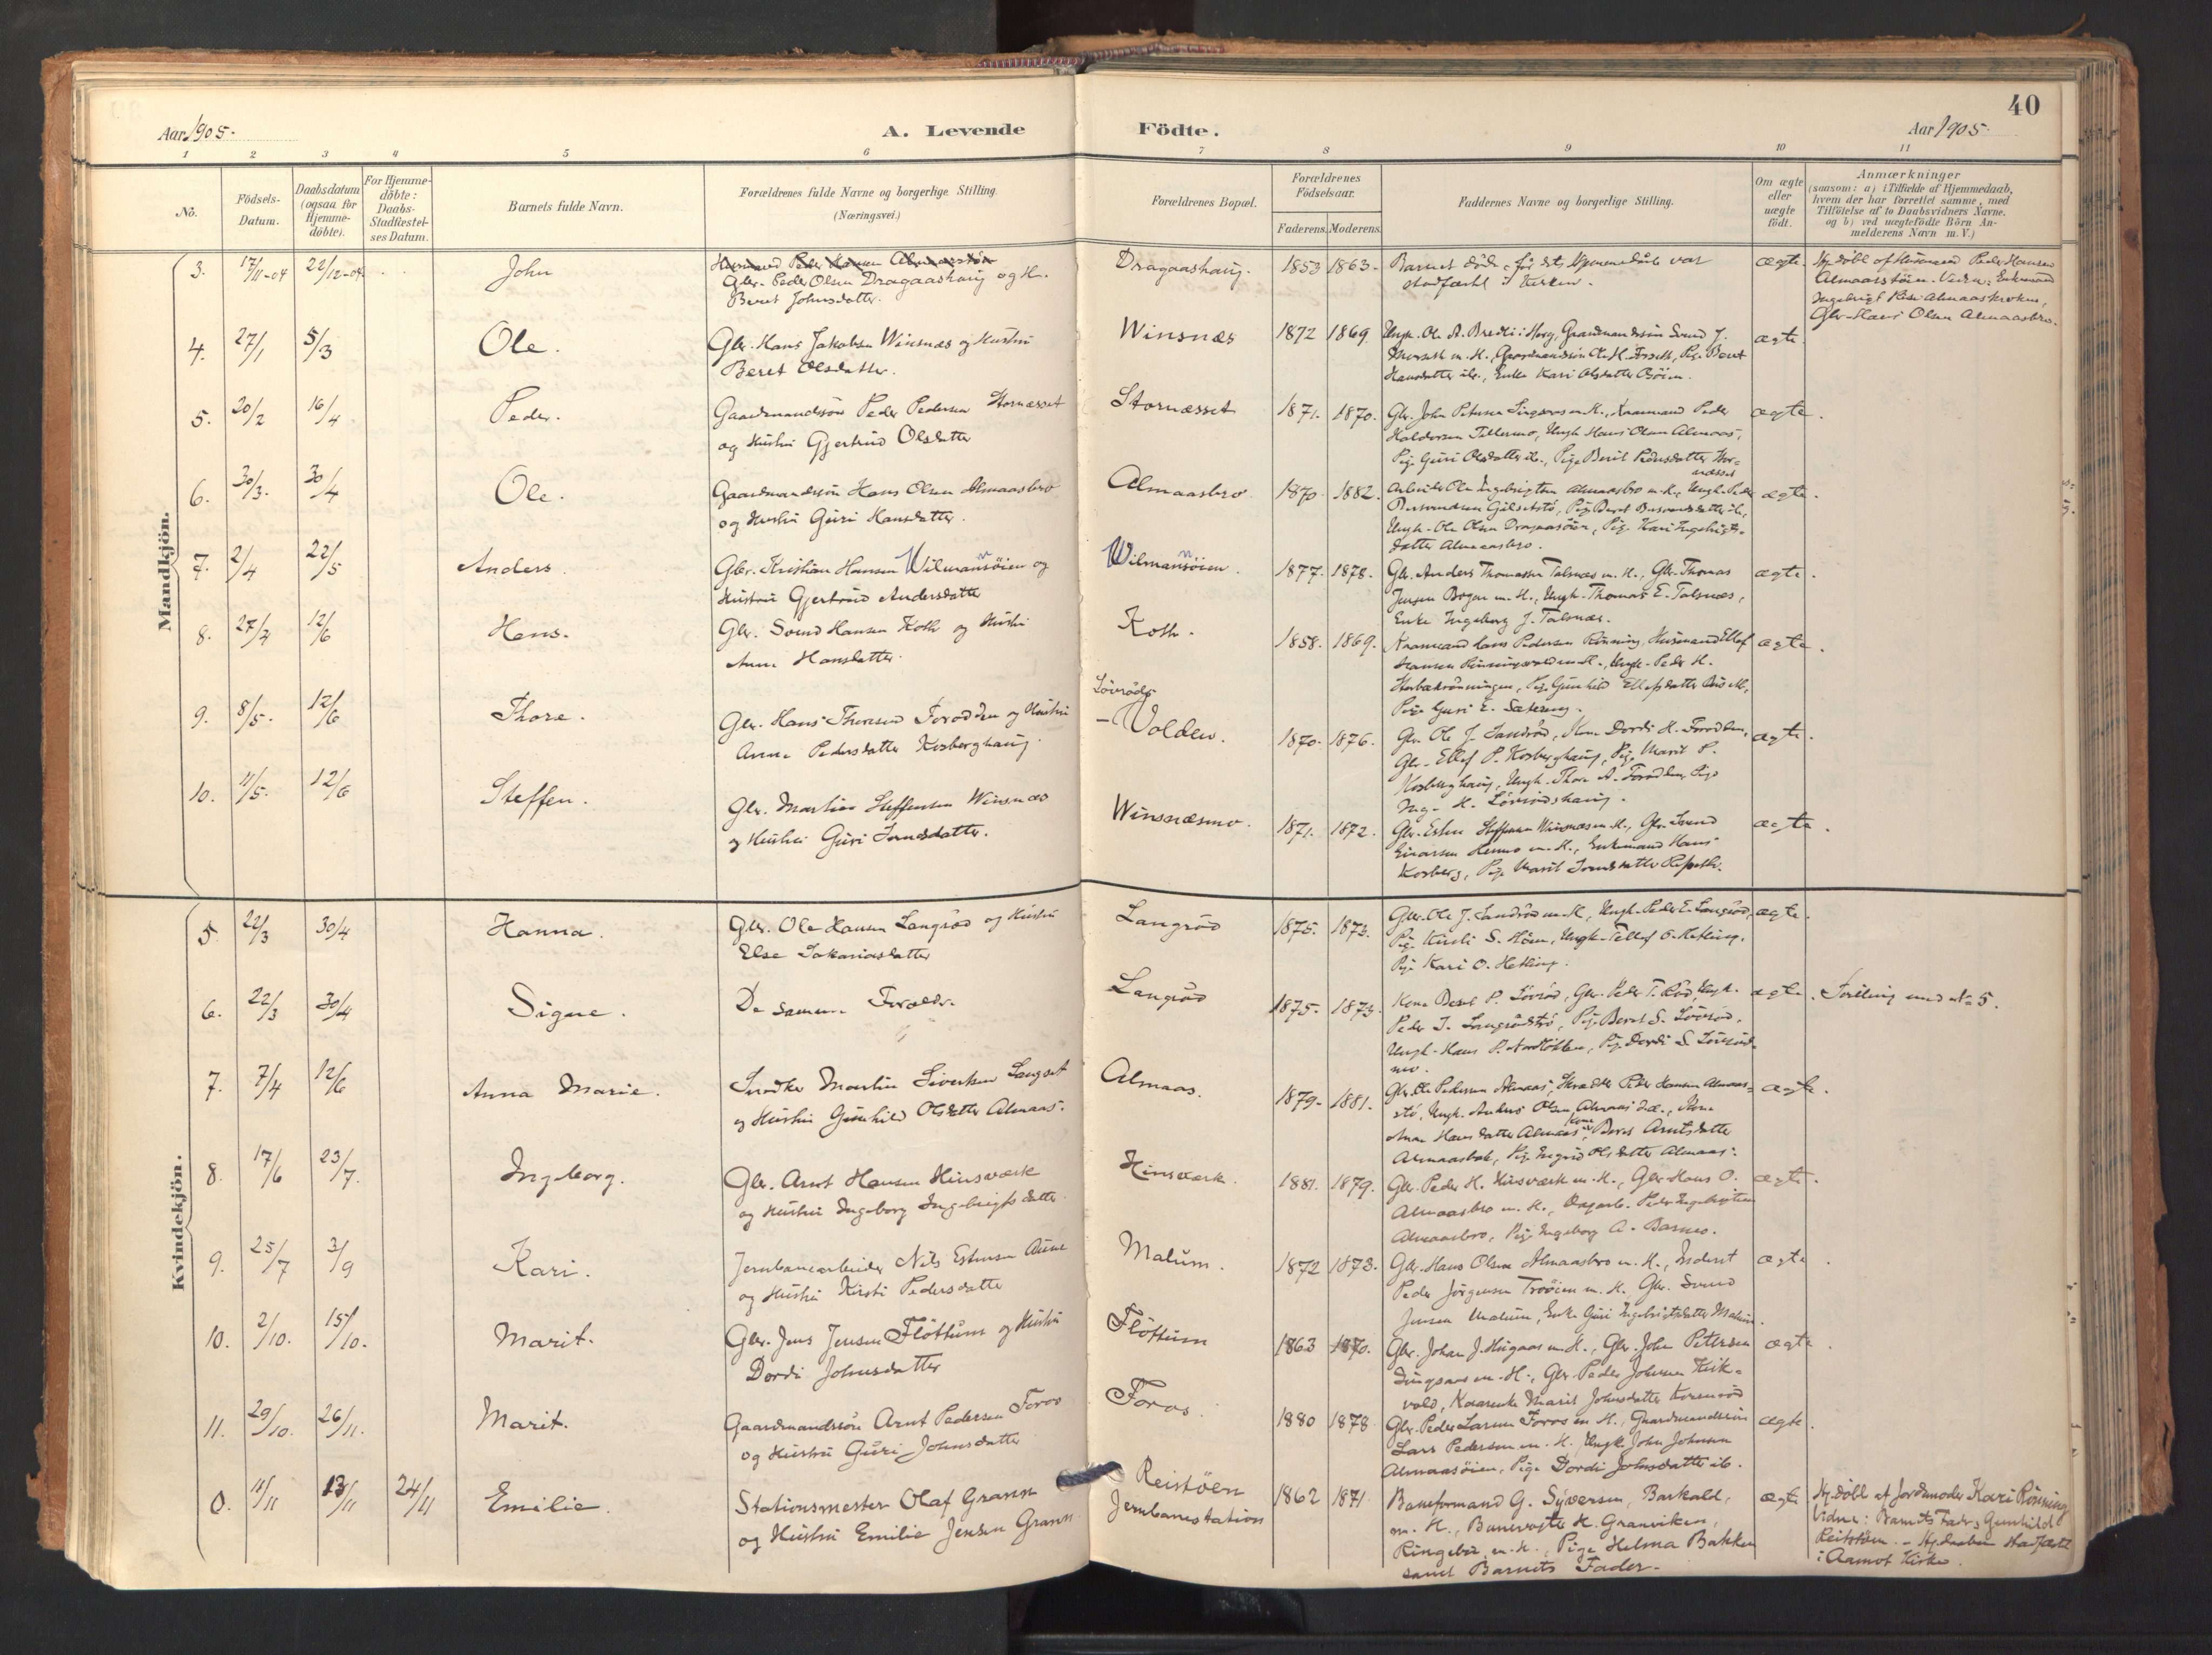 40
Aar 1905.
A. Levende
Födte.
Aar 1905.
1 2 3 4 5 6 7 8 9 10 11
No.
Födsels-
Datum.
Daabsdatum
(ogsaa for
Hjemme-
döbte).
For Hjemme-
döbte:
Daabs-
Stadfæstel-
ses Datum.
Barnets fulde Navn.
Forældrenes fulde Navne og borgerlige Stilling.
(Næringsvei.)
Forældrenes Bopæl.
Forældrenes
Födselsaar.
Faderens. Moderens.
Faddernes Navne og borgerlige Stilling.
Om ægte
eller
uægte
födt.
Anmærkninger
(saasom: a) i Tilfælde af Hjemmedaab,
hvem der har forrettet samme, med
Tilföielse af to Daabsvidners Navne.
og b) ved uægtefödte Börn An-
melderens Navn m. V.)
Mandkjön.
3. 17/11-04 22/12-04 John
Husmand Peder Hansen Almaasstöin
Gbr. Peder Olsen Dragaashaug og H.
Beret Johnsdatter.
Dragaashaug. 1853 1863.
Barnet döde för dets Hjemmedaab var
stadfæstet i Kirken.
ægte.
Hj. döbt af Husmand Peder Hansen
Almaasstöin. Vidn: Enkemand
Ingebrigt Almaaskroken,
Gbr. Hans Olsen Almaasbro.
4. 27/1 5/3 Ole.
Gbr. Hans Jakobsen Winsnæs og Hustru
Beret Olsdatter.
Winsnæs 1872 1869.
Ungk. Ole A. Bredli i Horg, Gaardmandssön Svend J.
m. H., Gaardmandssön Ole H. Forseth, Pig. Beret
Hansdatter ib., Enke Kari Olsdatter Böien.
ægte.
5. 20/2 16/4 Peder.
Gaardmandssön Peder Pedersen Stornæsset
og Hustru Gjertrud Olsdatter
Stornæsset 1871. 1870.
Gbr. John Petersen Singsaas m. H., Kaarmand Peder
Haldorsen Tillermo, Ungk. Hans Olsen Almaas,
Pige Guri Olsdatter ib., Pige Berit Pedersdatter Stor-
næsset
ægte.
6. 30/3. 30/4 Ole.
Gaardmandssön Hans Olsen Almaasbro
og Hustru Guri Hansdatter.
Almaasbro 1870 1882.
Arbeider Ole Ingebrigtsen Almaasbro m. H., Ungk. Peder
Ungk. Ole Olsen Dragaasöien, Pig. Kari Ingebrigts-
datter Almaasbro.
ægte.
7. 2/4 22/5 Anders.
Gbr. Kristian Hansen Wilmannsöien og
Hustru Gjertrud Andersdatter
Wilmannsöien. 1877. 1878.
Gbr. Anders Thomassen Talsnæs m. H., Gbr. Thomas
Jensen Bogen m. H., Ungk. Thomas E. Talsnæs,
Enke Ingeborg J. Talsnæs.
ægte.
8. 27/4 12/6 Hans.
Gbr. Svend Hansen Koth og Hustru
Anne Hansdatter.
Koth. 1858. 1869.
Kaarmand Hans Pedersen Rönning, Husmand Ellef
Hansen Rönningsvold m. H., Ungk. Peder H.
Storbækrönningen, Pige Gunhild Ellefsdatter
Pige Guri E. Sætereng.
ægte.
9. 8/5. 12/6 Thore.
Gbr. Hans Thoresen Forodden og Hustru
Anne Pedersdatter Kosberghaug.
Lövröds-
Volden. 1870. 1876.
Gbr. Ole J. Sandröd, Kone Dordi H. Forodden,
Gbr. Ellef P. Kosberghaug, Pig. Marit P.
Kosberghaug, Ungk. Thore A. Forodden, Pige
Ing. H. Lövrödshaug.
ægte.
10. 11/5. 12/6 Steffen.
Gbr. Martin Steffensen Winsnæs
og Hustru Guri
Winsnæsmo. 1871. 1872.
Gbr. Esten Steffensen Winsnæs m. H., Gbr. Svend
Einarsen m. H., Enkemand Hans
Kosberg, Pige Marit
ægte.
Kvindekjön.
5. 22/3 30/4 Hanna.
Gbr. Ole Hansen Langröd og Hustru
Else Sakariasdatter
Langröd 1875. 1873.
Gbr. Ole J. Sandröd m. H., Ungk. Peder E. Langröd,
Pig. Kirsti S. Höen, Ungk. Tellef O. Hetling,
Pige Kari O. Hetling.
ægte.
6. 22/3 30/4 Signe.
De samme Forældr.
Langröd 1875. 1873.
Kone Beret P. Lövröd, Gbr. Peder T. Röd, Ungk.
Peder J. Langrödströ, Pig. Beret S. Lövröd,
Ungk. Hans P. Pig. Dordi S. Lövröd-
mo.
ægte. Tvilling med No 5.
7. 7/4 12/6 Anna Marie.
Snedker Martin Sivertsen Langset
og Hustru Gunhild Olsdatter Almaas.
Almaas. 1879. 1881.
Gbr. Ole Pedersen Almaas, Skrædder Peder Hansen Almaas-
stö, Ungk. Anders Olsen Almaas Kone
Anne Hansdatter Almaas, Kone Beret Arntsdatter
Almaasbak, Pig. Ingrid Olsdatter Almaas.
ægte.
8. 17/6 23/7. Ingeborg.
Gbr. Arnt Hansen Hinsværk
og Hustru Ingeborg Ingebrigtsdatter.
Hinsværk. 1881. 1879.
Gbr. Peder H. Hinsværk m. H., Gbr. Hans O.
Almaasbro m. H., Dagarb. Peder Ingebrigtsen
Almaasbro, Pige Ingeborg A. Barmo.
ægte.
9. 25/7 3/9 Kari.
Jernbanearbeider Nils Estensen Aune
og Hustru Kirsti Pedersdatter
Malum. 1872 1873.
Gbr. Hans Olsen Almaasbro m. H., Inderst
Peder Jörgensen Trööien m. H., Gbr. Svend
Jensen Malum, Enke Guri Ingebrigtsdatter Malum.
ægte.
10. 2/10. 15/10. Marit.
Gbr. Jens Jensen Flöttum og Hustru
Dordi Johnsdatter
Flöttum 1863 1870.
Gbr. Johan J. Haugaas m. H., Gbr. John Petersen
Singsaas m. H., Gbr. Peder Johnsen Kirk-
vold, Kaarenke Marit Johnsdatter
ægte.
11. 29/10. 26/11. Marit.
Gaardmandssön Arnt Pedersen Foros
og Hustru Guri Johnsdatter
Foros. 1880 1878
Gbr. Peder Larsen Foros m. H., Gaardmandssön
Lars Pedersen m. H. Ungk. John Johnsen
Almaasöien, Pige Dordi Johnsdatter ib.
ægte.
0. 11/11 13/11 24/11 Emilie.
Stationsmester Olaf Grann
og Hustru Emilie Jensen Grann.
Reitstöen
Jernbanestation 1862 1871
Baneformand G. Syversen, Barkald,
m. H., Banevogter H. Granviken,
Ringebu m. H., Pige Helma Bakken
samt Barnets Fader.
ægte
Hj. döbt af Jordemoder Kari Rönning
Vidne: Barnets Fader, Gunhild
Reitstöen. - Hj. daaben stadfæstet
i Aamot Kirke.